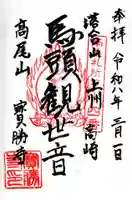 奉拝 令和八年三月一日
上州 高崎
馬頭観世音
高尾山 寶勝寺